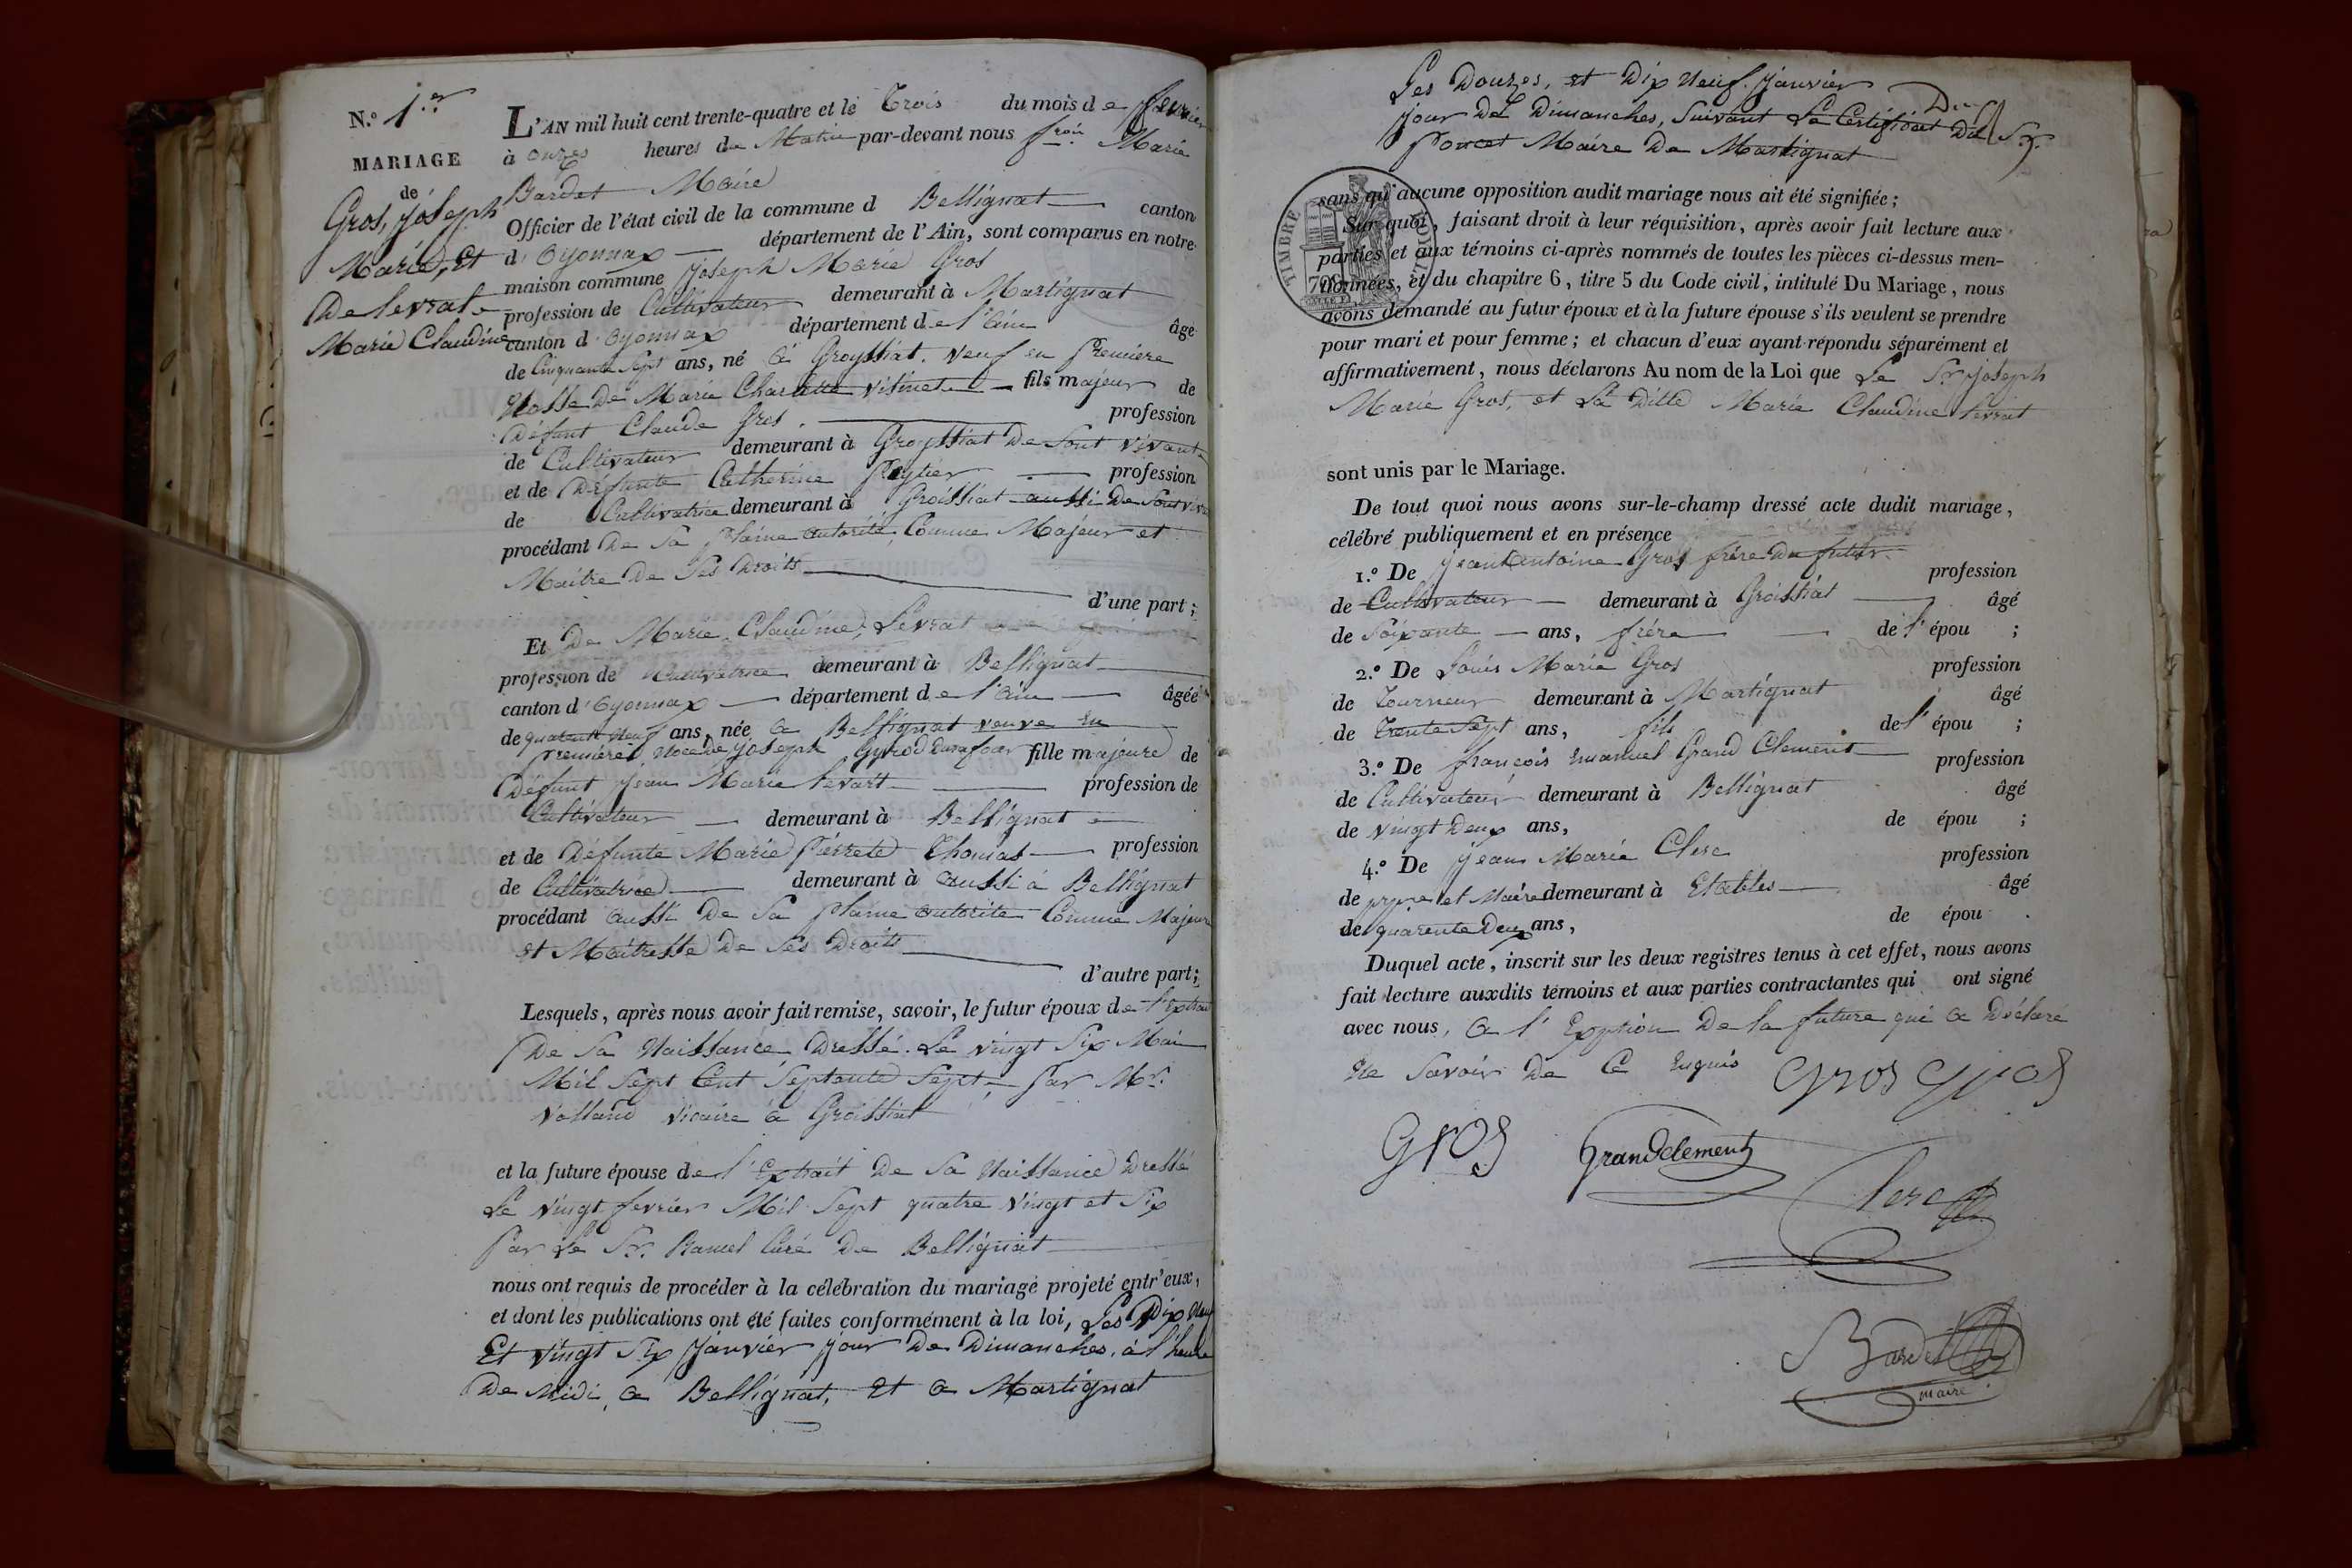 N.º 1.er
MARIAGE
de
Gros, Joseph
Marie, Et
De levrat
Marie Claudine
L'AN mil huit cent trente-quatre et le Trois du mois de fevrier
à onzes heures du Matin par-devant nous fçois Marie
Bardet Maire
Officier de l'état civil de la commune d Bellignat canton
d'Oyonnax département de l'Ain, sont comparus en notre
maison commune Joseph Marie Gros
profession de Cultivateur demeurant à Martignat
canton d'Oyonnax département de l'ain âgé
de Cinquante Sept ans, né à Groyssiat. veuf en Premiere
Nosse de Marie Charlotte fils majeur de
Défunt Claude Gros. profession
de Cultivateur demeurant à Groyssiat De Sont vivant
et de Défunte Catherine profession
de Cultivatrice demeurant à Groissiat aussi De Sont viva
procédant De Sa plaine autorité Comme Majeur et
Maitre De Ses Droits
d'une part;
Et De Marie Claudine Levrat
profession de Cultivatrice demeurant à Bellignat
canton d'Oyonnax département de l'ain âgée
de quarante Neuf ans, née a Bellignat veuve En
première Noce de Joseph fille majeure de
Défunt Jean Marie levart profession de
Cultivateur demeurant à Bellignat
et de Défunte Marie Pierrete Thomas profession
de Cultivatrice demeurant à aussi à Bellignat
procédant aussi De Sa plaine autorite Comme Majeure
et Maitresse De Ses Droits
d'autre part;
Lesquels, après nous avoir fait remise, savoir, le futur époux de l'Extrait
De Sa Naissance Dressé. Le vingt Six Mai
Mil Sept Cent Septante Sept par Mr.
Volland Vicaire à Groissiat
et la future épouse de l'Extrait De Sa Naissance Dressé
Le vingt fevrier Mil Sept quatre Vingt et Six
Par Le Sr. Curé De Bellignat
nous ont requis de procéder à la célébration du mariage projeté entr'eux,
et dont les publications ont été faites conformément à la loi, Les Dix Neuf
Et vingt Six Janvier Jour De Dimanches, à l'heure
De Midi, a Bellignat, Et a Martignat
Les Douzes, et Dix Neuf. Janvier
Jour De Dimanches, Suivant Le Certificat Du Sr.
Poncet Maire De Martignat
TIMBRE ROYAL
70 C
sans qu'aucune opposition audit mariage nous ait été signifiée;
Sur quoi, faisant droit à leur réquisition, après avoir fait lecture aux
parties et aux témoins ci-après nommés de toutes les pièces ci-dessus men-
tionnées, et du chapitre 6, titre 5 du Code civil, intitulé Du Mariage, nous
avons demandé au futur époux et à la future épouse s'ils veulent se prendre
pour mari et pour femme; et chacun d'eux ayant répondu séparément et
affirmativement, nous déclarons Au nom de la Loi que Le Sr. Joseph
Marie Gros, et La Ditte Marie Claudine levrat
sont unis par le Mariage.
De tout quoi nous avons sur-le-champ dressé acte dudit mariage,
célébré publiquement et en présence
1.º De Jean antoine Gros frère Du futur. profession
de Cultivateur demeurant à Groissiat âgé
de Soixante ans, frére de l'épou ;
2.º De Louis Marie Gros profession
de Tourneur demeurant à Martignat âgé
de Trente Sept ans, fils de l'épou ;
3.º De françois Emanuel Grand Clement profession
de Cultivateur demeurant à Bellignat âgé
de vingt Deux ans, de épou ;
4.º De Jean Marie Clerc profession
de et Maire demeurant à Etables âgé
de quarente Deux ans, de épou .
Duquel acte, inscrit sur les deux registres tenus à cet effet, nous avons
fait lecture auxdits témoins et aux parties contractantes qui ont signé
avec nous, a l'Exption De la future qui a Déclare
Ne Savoir De Ce Enquis Gros Gros
Gros Grandclement
Clerc
Bardet
maire